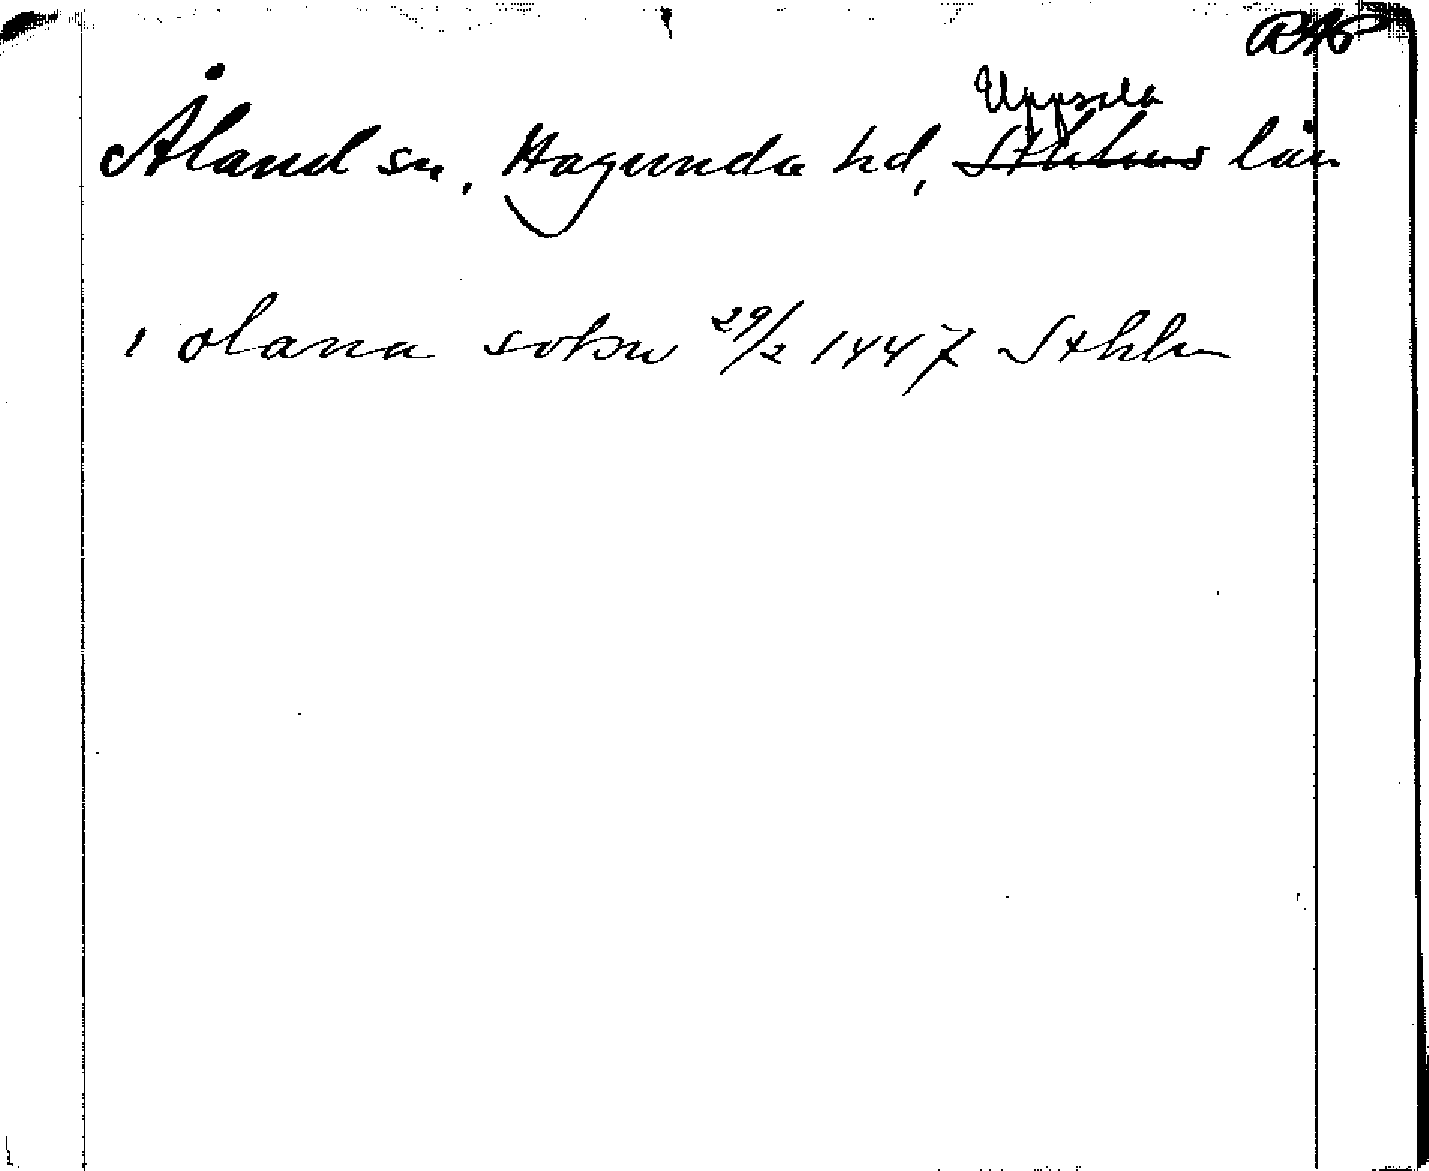 RAP
Uppsala
Åland sn, Hagunda hd, Sthlms län
i olana sokn 29/2 1447 Sthlm